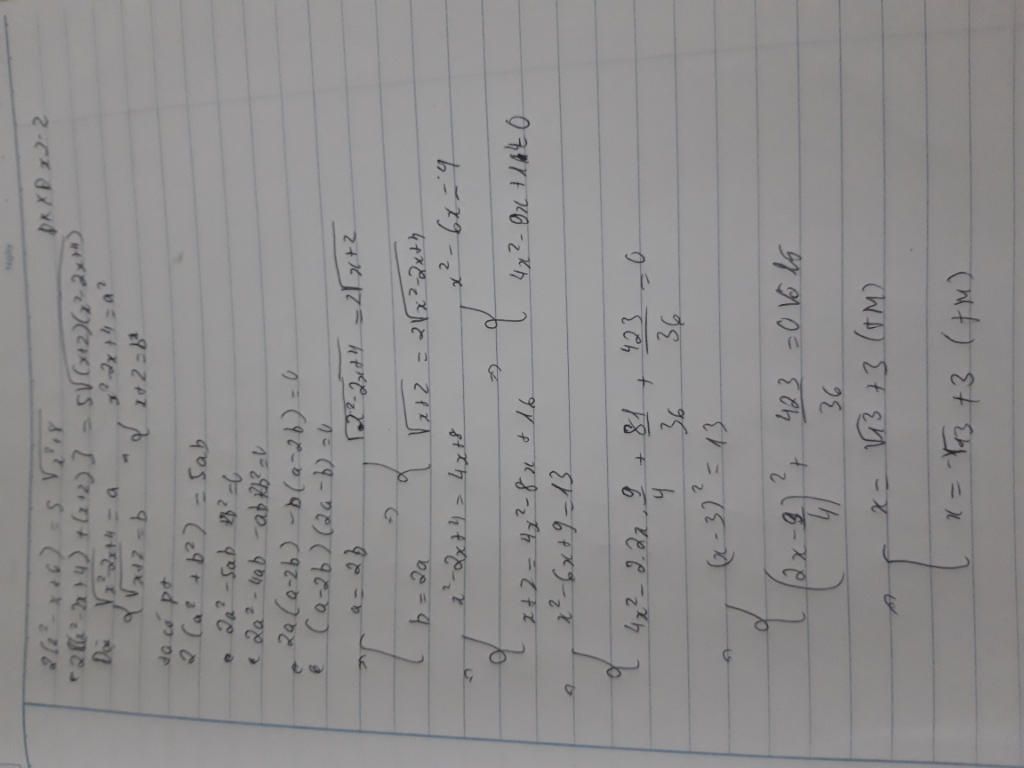 2(x² - x + 6) = 5√x³+8 ĐKXĐ x≥-2
2[(x²-2x+4)+(x+2)] = 5√(x+2)(x²-2x+4)
Đặt { √x²-2x+4 = a { x²-2x+4 = a²
√x+2 = b → x+2 = b²
ta có pt
2(a²+b²) = 5ab
2a² - 5ab + 2b² = 0
2a² - 4ab - ab + 2b² = 0
2a(a-2b) - b(a-2b) = 0
(a-2b)(2a-b) = 0
⇒ [ a = 2b ⇒ [ √x²-2x+4 = 2√x+2
b = 2a √x+2 = 2√x²-2x+4
⇒ [ x²-2x+4 = 4x+8 ⇒ [ x²-6x = 4
x+2 = 4x²-8x+16 4x²-9x+14=0
⇒ [ x²-6x+9 = 13
4x² - 2.2x.9/4 + 81/36 + 423/36 = 0
⇒ [ (x-3)² = 13
(2x-9/4)² + 423/36 = 0
⇒ [ x = √13+3 (TM)
x = -√13+3 (TM)